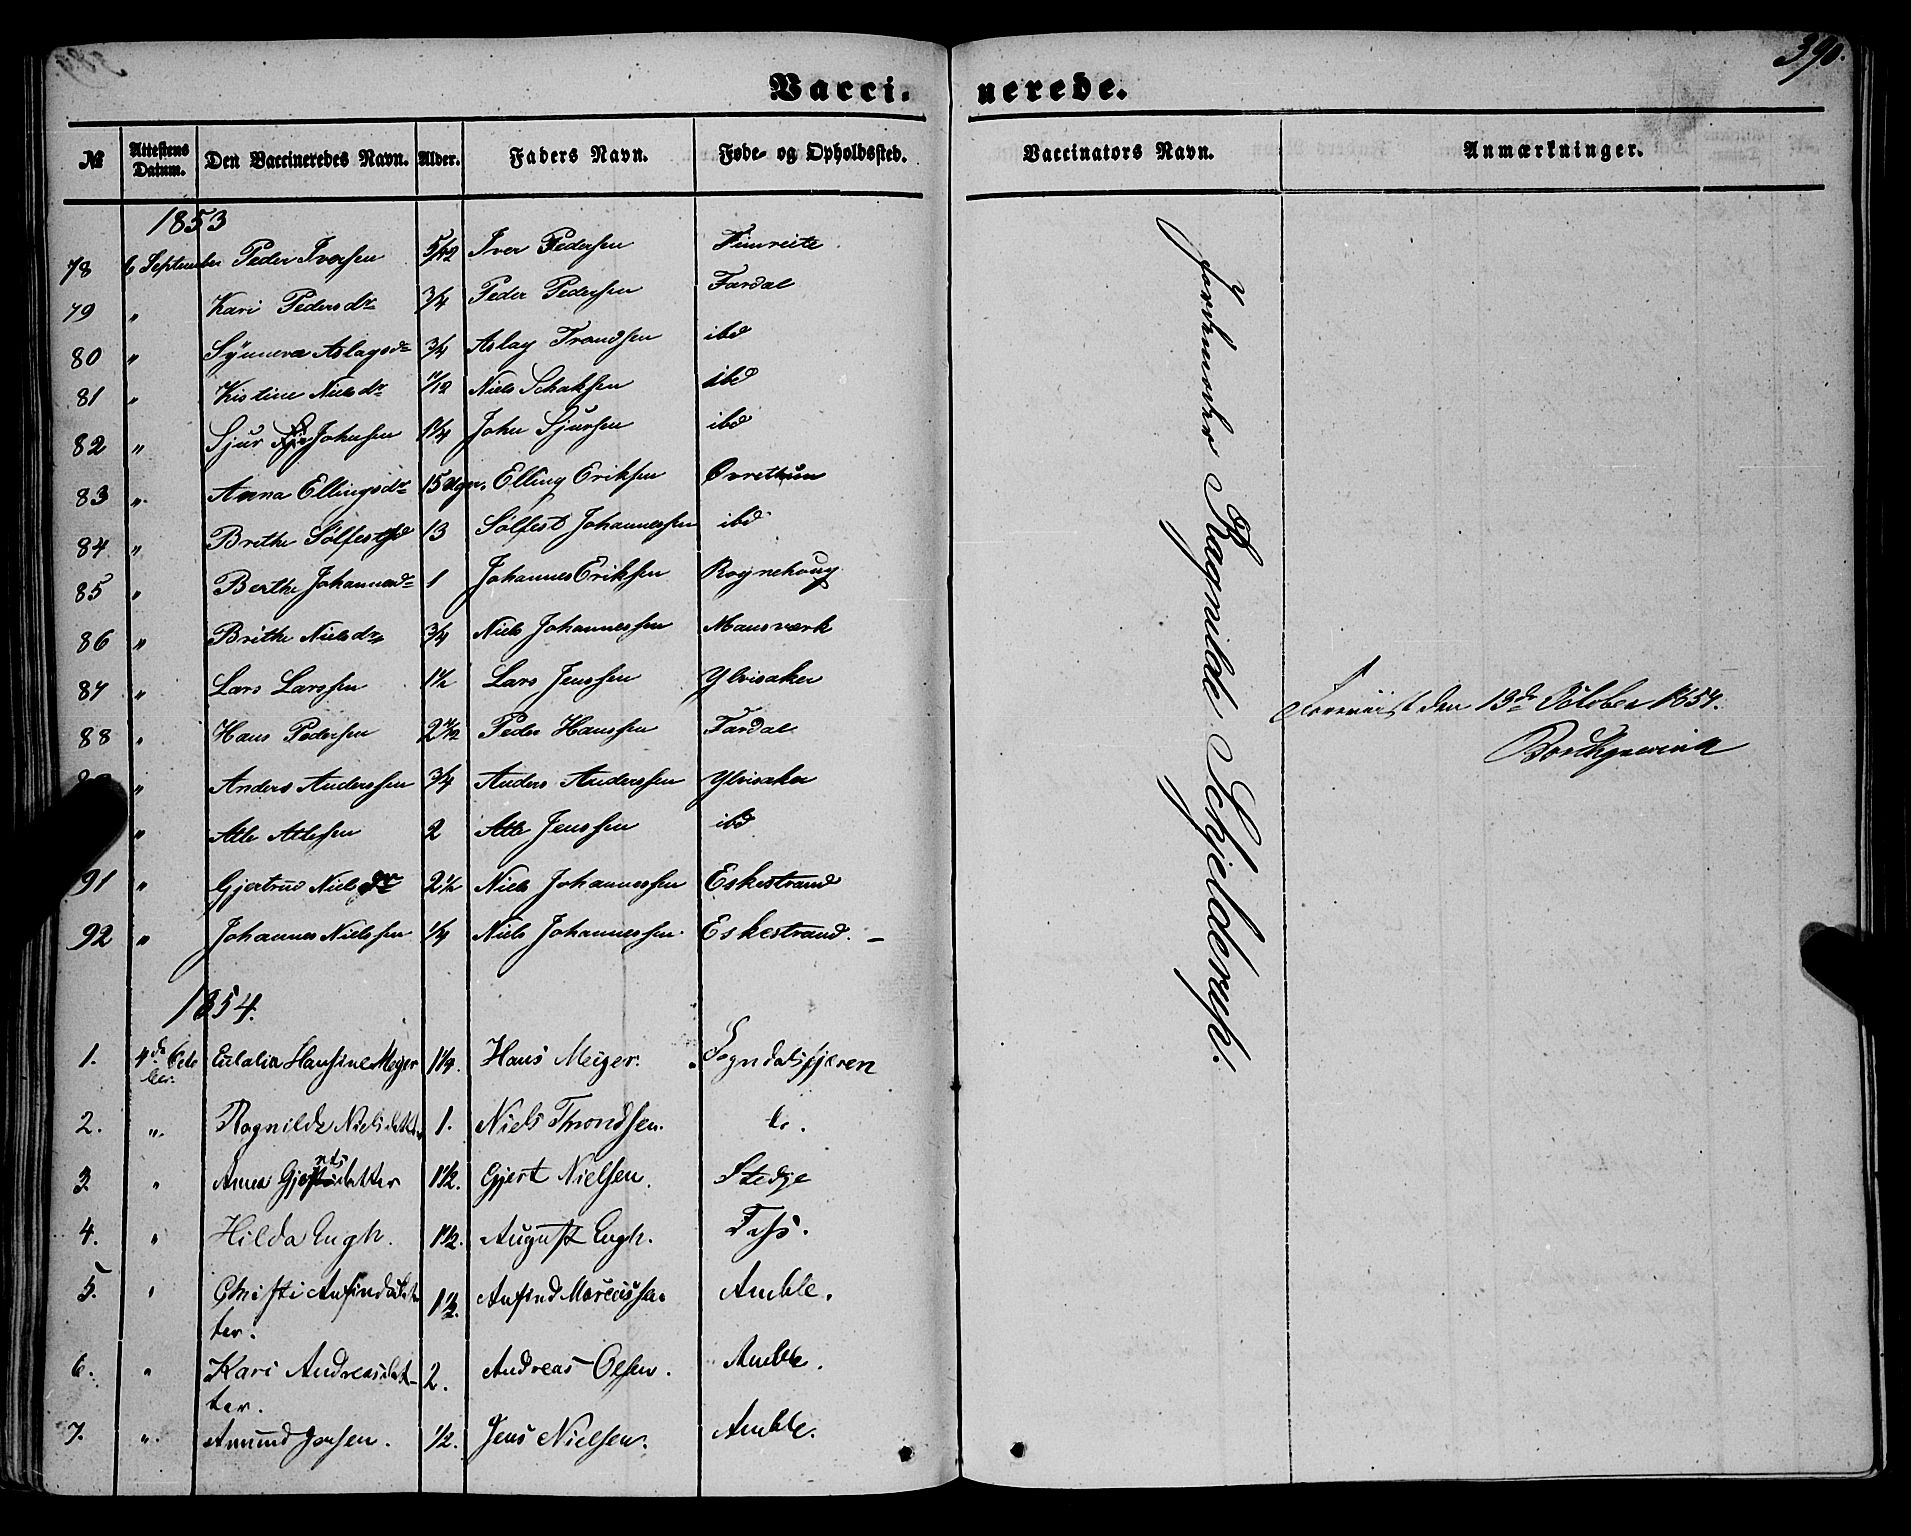 390.
Vacci- nerede.
№ Attestens Datum. Den Vaccineredes Navn. Alder. Faders Navn. Føde- og Opholdssted. Vaccinators Navn. Anmærkninger.
1853
78 6 September Peder Iversen 5/12 Iver Pedersen Fimreite
79 " Kari Pedersdr 3/4 Peder Pedersen Fardal
80 " Synneva Aslagsdr 3/4 Aslag Trondsen ibd
81 " Kistine Nielsdr 11/12 Niels Schaksen ibd
82 " Sjur Johnsen 1 1/4 John Sjursen ibd
83 " Anna Ellingsdr 15 Ugr. Elling Eriksen Ovrethun
84 " Brithe Sølfestsd 13 Sølfest Johannessen ibd
85 " Berthe Johannesdr 1 Johannes Eriksen Rognehoug
86 " Brithe Nielsdr 3/4 Niels Johannessen Mansværk
87 " Lars Larssen 1 1/2 Lars Jenssen Ylvisaker
88 " Hans Pedersen 2 1/2 Peder Hanssen Fardal
" Anders Anderssen 3/4 Anders Anderssen Ylvisaker
" Atle Atlesen 2 Atle Jenssen ibd
91 " Gjertrud Nielsdr 2 1/2 Niels Johannessen Eskestrand
92 " Johannes Nielssen 1/4 Niels Johannessen Eskestrand. –
1854.
1. 4de Octo Eulalia Hansine Meyer 1 1/4. Hans Meyer. Sogndalsfjæren
ber.
2. ". Ragnilde Nielsdatt 1. Niels Throndsen. do.
3 " Anna Gjertsdatter 1 1/2. Gjert Nielsen. Stedje
4. " Hilda Engh. 1 1/2. August Engh. Foss.
5. " Christi Anfindsdat 1 1/2. Anfind Marcussen Amble.
ter.
6. " Kari Andreasdat- 2. Andreas Olsen. Amble.
ter.
7. ". Amund Jensen. 1/2. Jens Nielsen. Amble.
Jordemoder Ragnilde Schjelderup.
Foreviist den 13de October 1854.
Borchgrevink